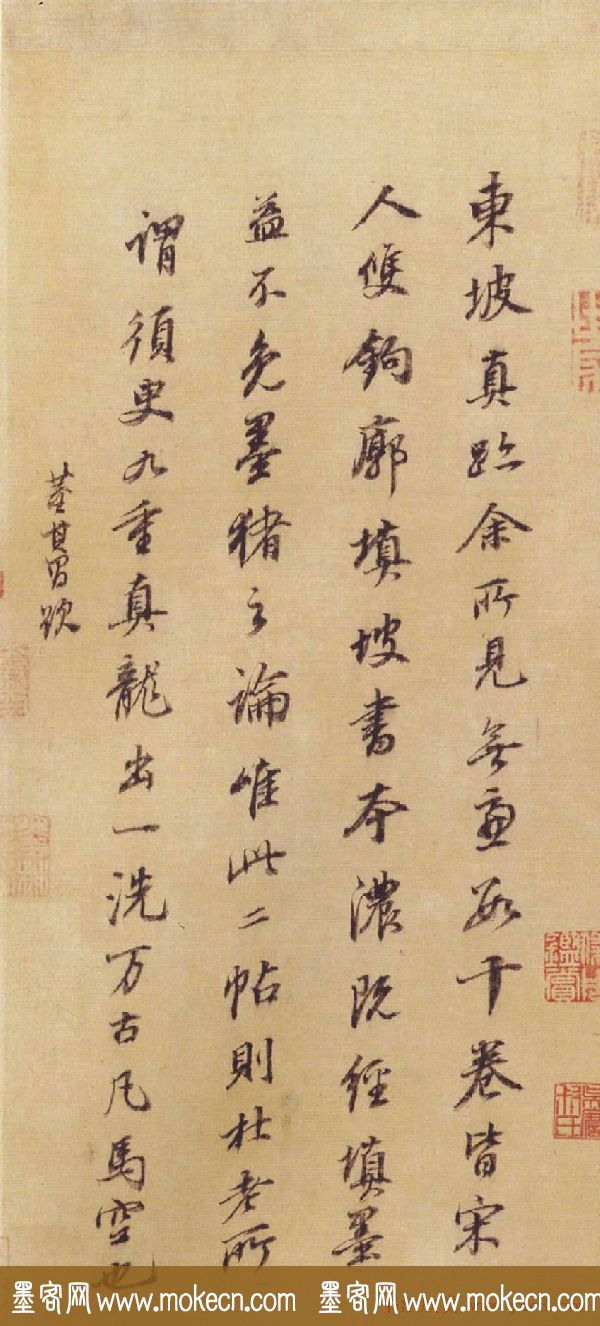 東坡真跡余所見無慮數十卷皆宋
人雙鉤廓填坡書本濃既經填墨
益不免墨猪之論唯此二帖則杜老所
謂須臾九重真龍出一洗万古凡馬空也
董其昌跋
墨客网 www.mokecn.com 墨客网 www.mokecn.com